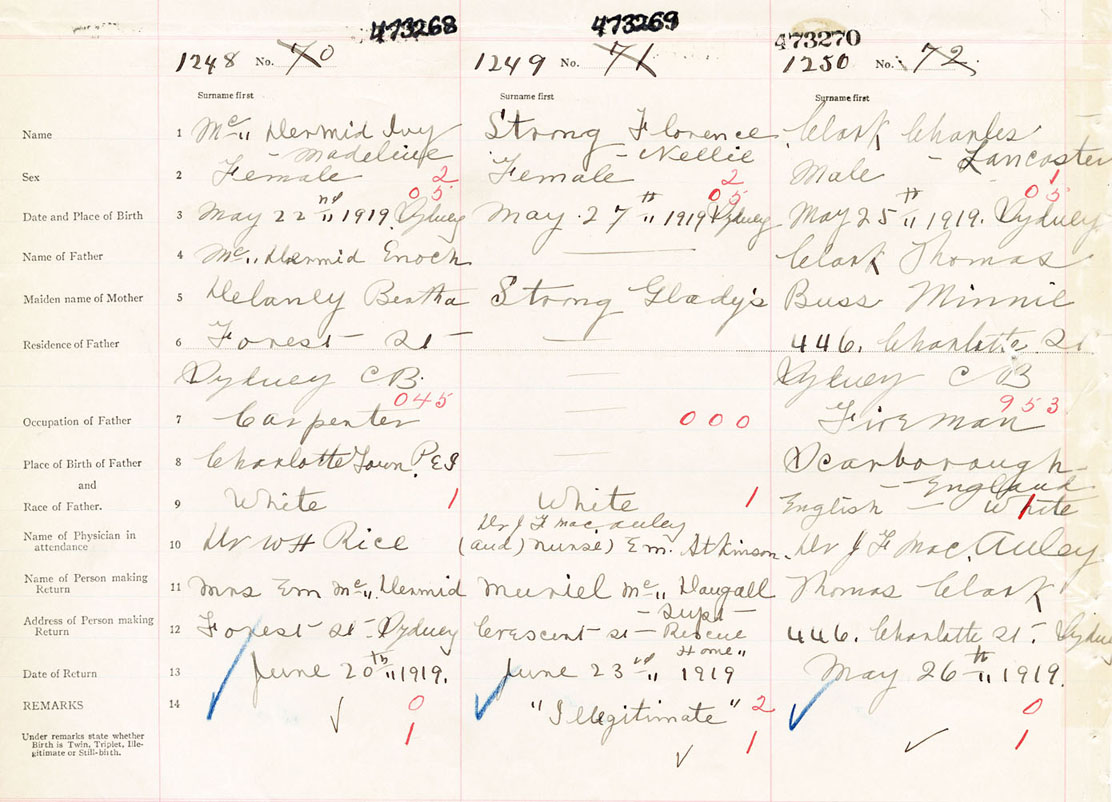 473268 473269 473270
1248 No. 70 1249 No. 71 1250 No. 72
Surname first Surname first Surname first
Name 1 Mc Dermid Ivy Strong Florence Clark Charles
- Madeline - Nellie - Lancaster
Sex 2 Female 2 Female 2 Male 1
05 05 05
Date and Place of Birth 3 May 22nd 1919. Sydney May 27th 1919 Sydney May 25th 1919. Sydney
Name of Father 4 Mc Dermid Enoch — Clark Thomas
Maiden name of Mother 5 Delaney Bertha Strong Gladys Buss Minnie
Residence of Father 6 Forest St — 446. Charlotte St
Sydney C B. — Sydney C B
045 953
Occupation of Father 7 Carpenter — 000 Fireman
Place of Birth of Father 8 Charlotte Town P.E.I — Scarborough
and - England
Race of Father. 9 White 1 White 1 English - White 1
Name of Physician in Dr J F MacAuley
attendance 10 Dr W H Rice (and) Nurse) Em. Atkinson. Dr J F MacAuley
Name of Person making
Return 11 Mrs Em Mc Dermid Muriel Mc Dougall Thomas Clark
- Supt -
Address of Person making
Return 12 Forest St - Sydney Crescent St - Rescue Home 446. Charlotte St. Sydney
Date of Return 13 June 20th 1919. June 23rd 1919 May 26th 1919.
REMARKS 14 0 "Illegitimate" 2 0
Under remarks state whether
Birth is Twin, Triplet, Ille-
gitimate or Still-birth.
1 1 1